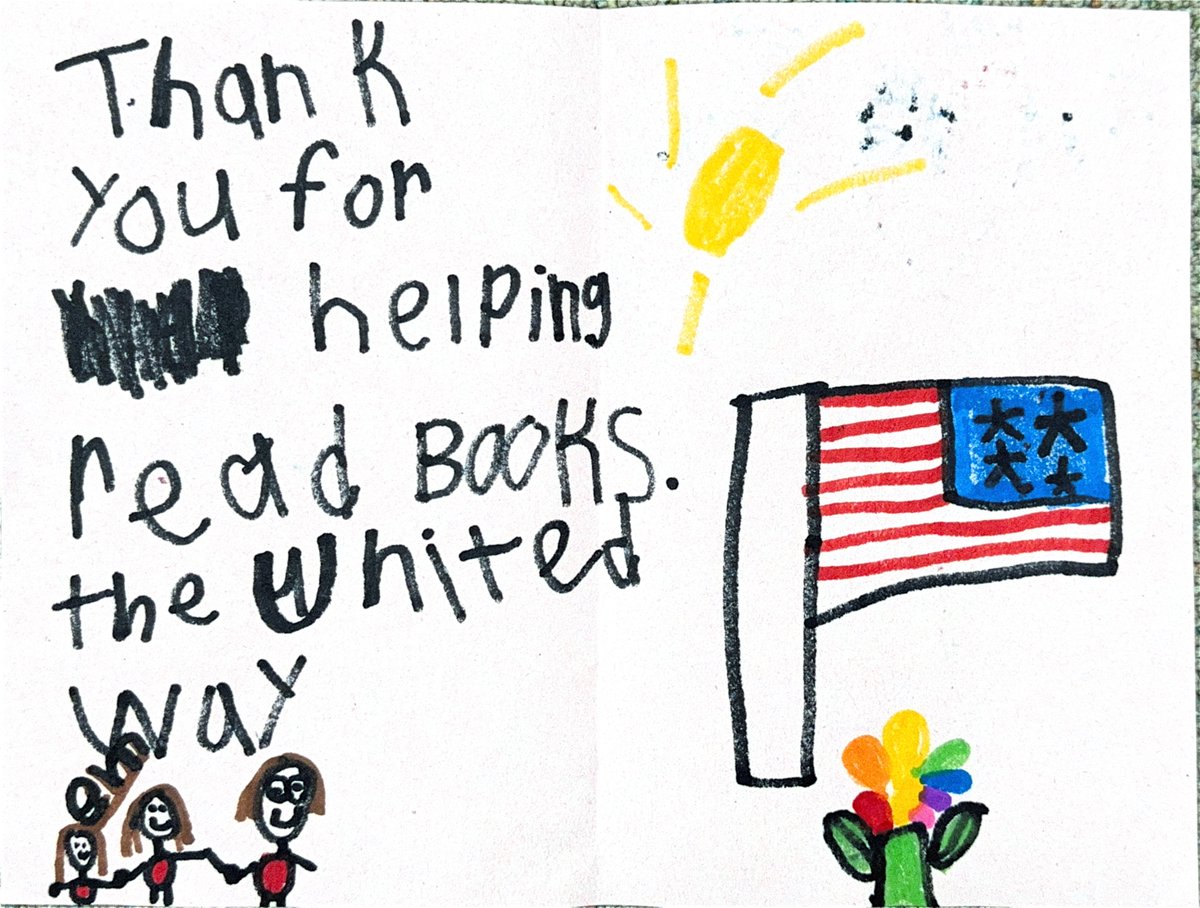 Thank
you for
helping
read BOOKS.
the United
way